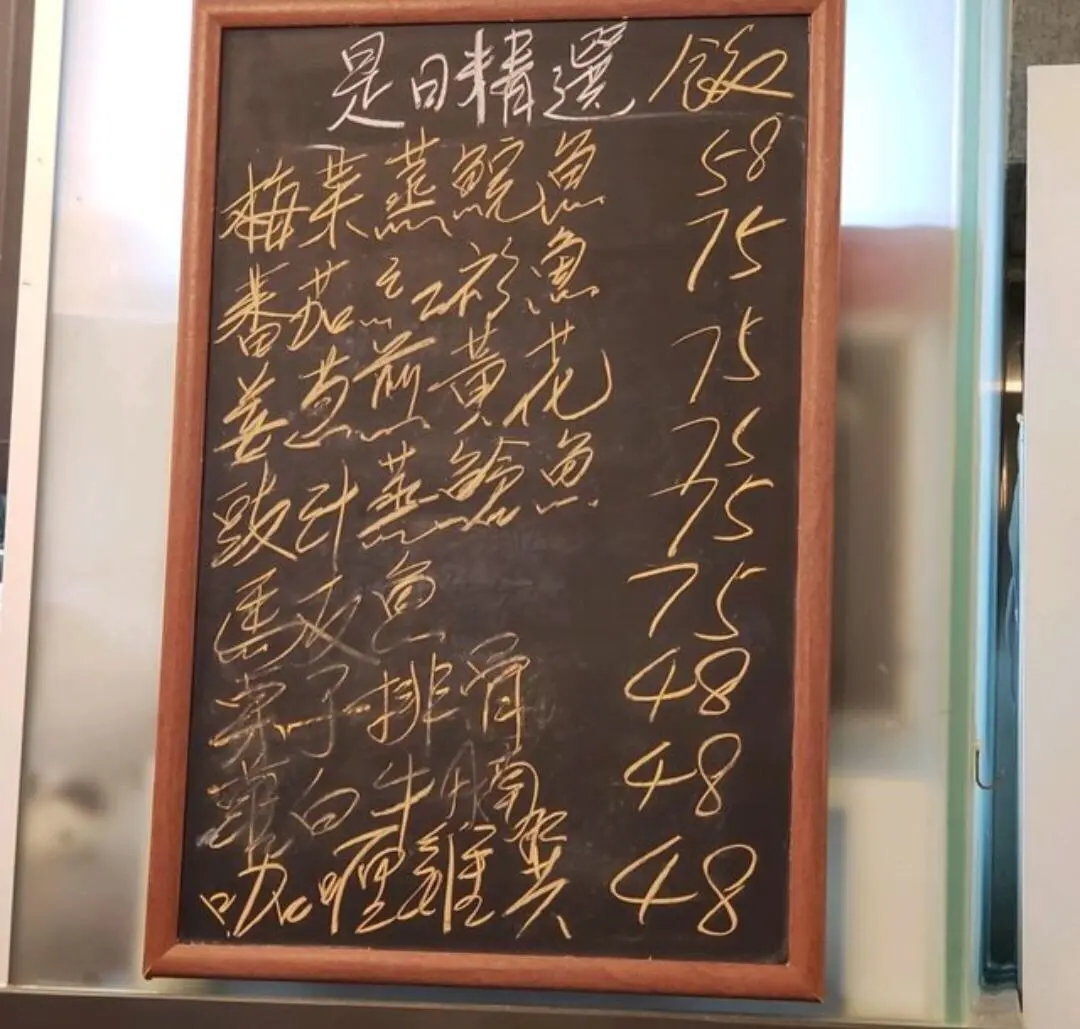 是日精選 飯
梅菜蒸鯇魚 58
番茄紅衫魚 75
姜葱煎黃花 75
豉汁蒸魚 75
75
馬友魚 75
栗子排骨 48
白牛腩 48
咖喱雞翼 48